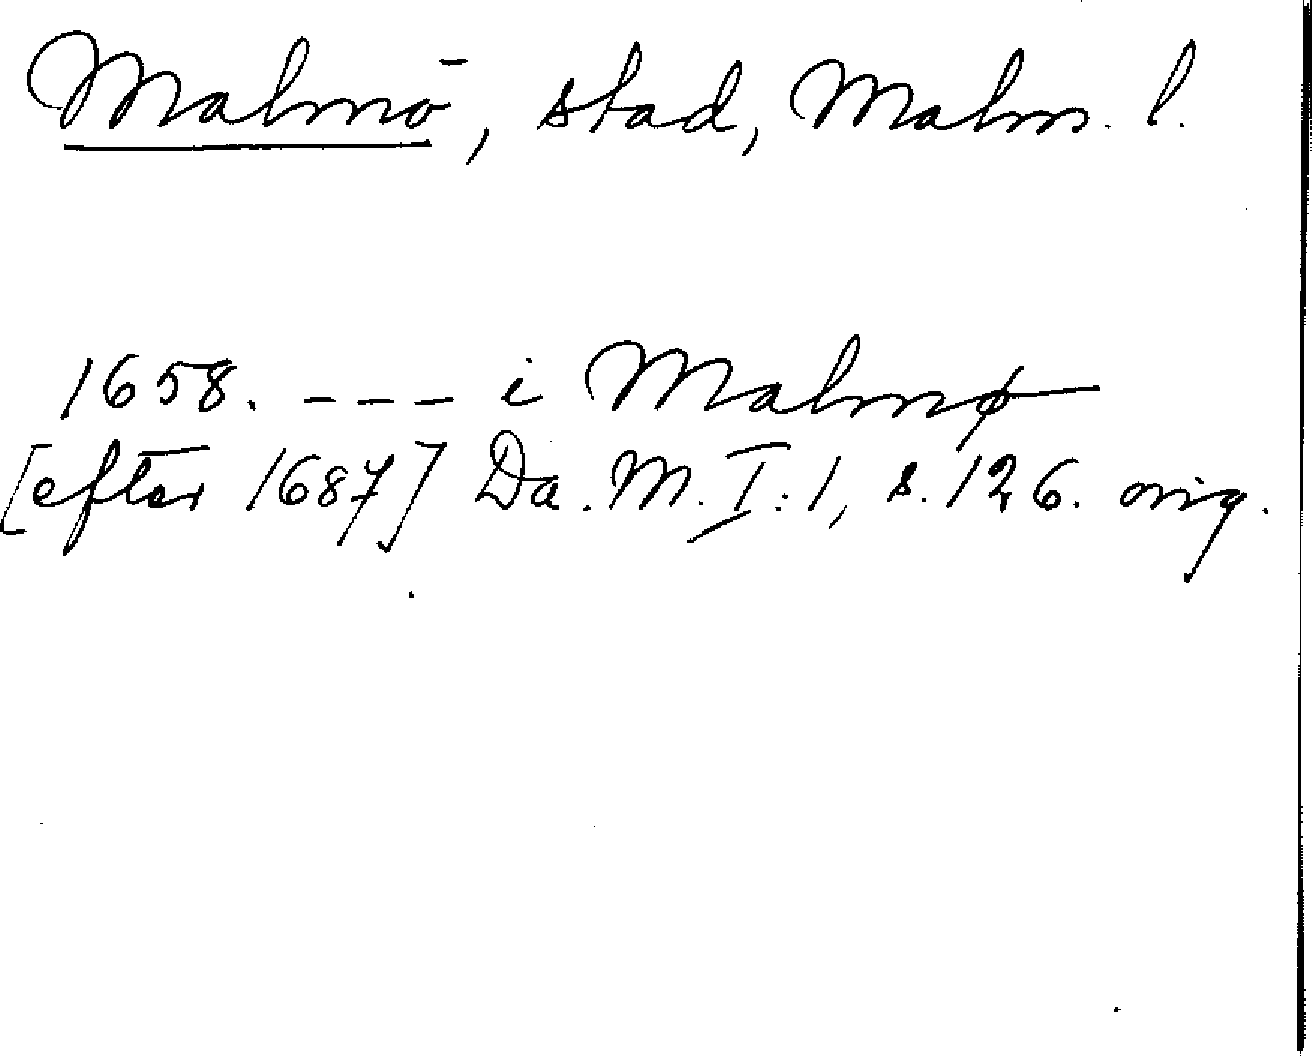 Malmö, stad, Malm. l.
1658. --- i Malmø
[efter 1687] Da. M. I:1, s. 126. orig.